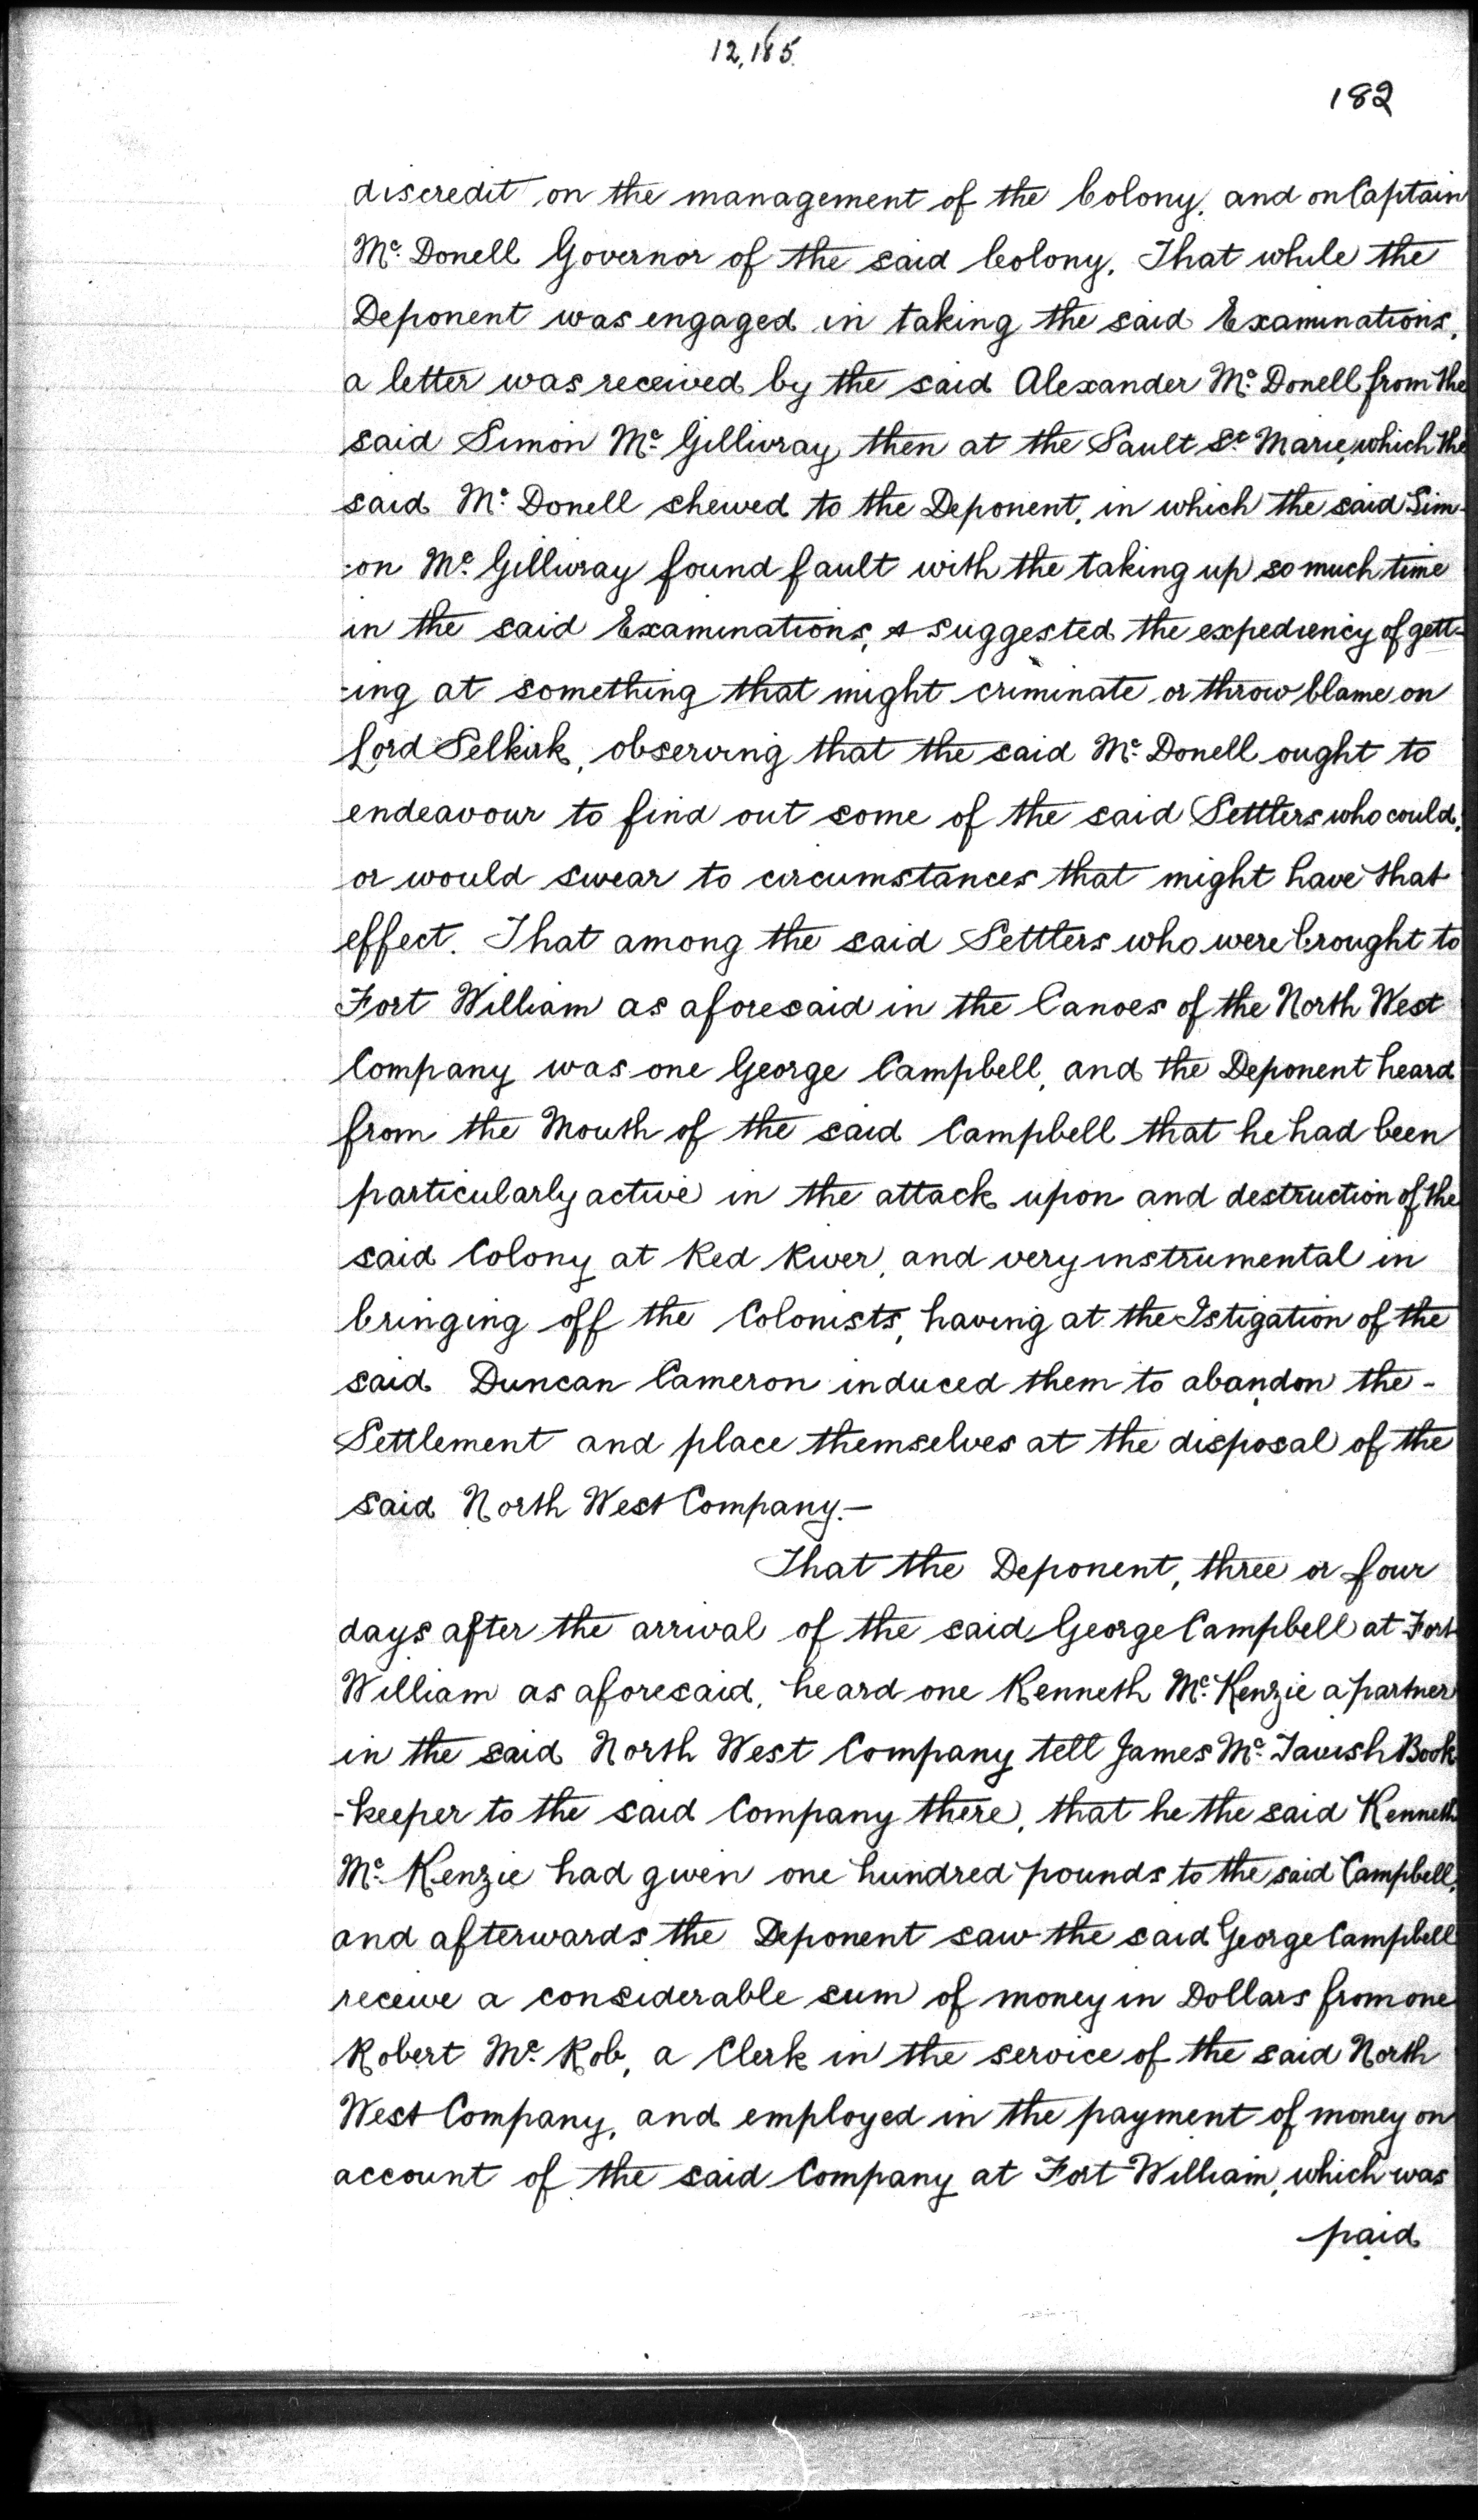 12,185.
182
discredit on the management of the Colony, and on Captain
Mc. Donell Governor of the said Colony. That while the
Deponent was engaged in taking the said Examinations,
a letter was received by the said Alexander Mc. Donell from the
said Simon Mc. Gillivray, then at the Sault St. Marie, which the
said Mc. Donell shewed to the Deponent, in which the said Sim-
:on Mc. Gillivray found fault with the taking up so much time
in the said Examinations, & suggested the expediency of gett-
-ing at something that might criminate or throw blame on
Lord Selkirk, observing that the said Mc. Donell ought to
endeavour to find out some of the said Settlers who could,
or would swear to circumstances that might have that
effect. That among the said Settlers who were brought to
Fort William as aforesaid in the Canoes of the North West
Company was one George Campbell, and the Deponent heard
from the Mouth of the said Campbell that he had been
particularly active in the attack upon and destruction of the
said Colony at Red River, and very instrumental in
bringing off the Colonists, having at the Istigation of the
said Duncan Cameron induced them to abandon the -
Settlement and place themselves at the disposal of the
said North West Company.—
That the Deponent, three or four
days after the arrival of the said George Campbell at Fort
William as aforesaid, heard one Kenneth Mc. Kenzie a partner
in the said North West Company tell James Mc. Tavish Book
-keeper to the said Company there, that he the said Kenneth
Mc. Kenzie had given one hundred pounds to the said Campbell,
and afterwards the Deponent saw the said George Campbell
receive a considerable sum of money in Dollars from one
Robert Mc. Rob, a Clerk in the service of the said North
West Company, and employed in the payment of money on
account of the said Company at Fort William, which was
paid